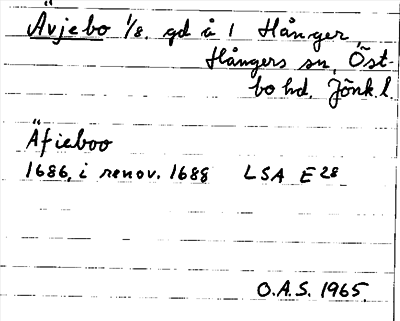 Ävjebo 1/8. gd å 1 Hånger,
Hångers sn, Öst-
bo hd, Jönk.l.
Äfieboo
1686, i renov. 1688 LSA E 28
O.A.S. 1965.